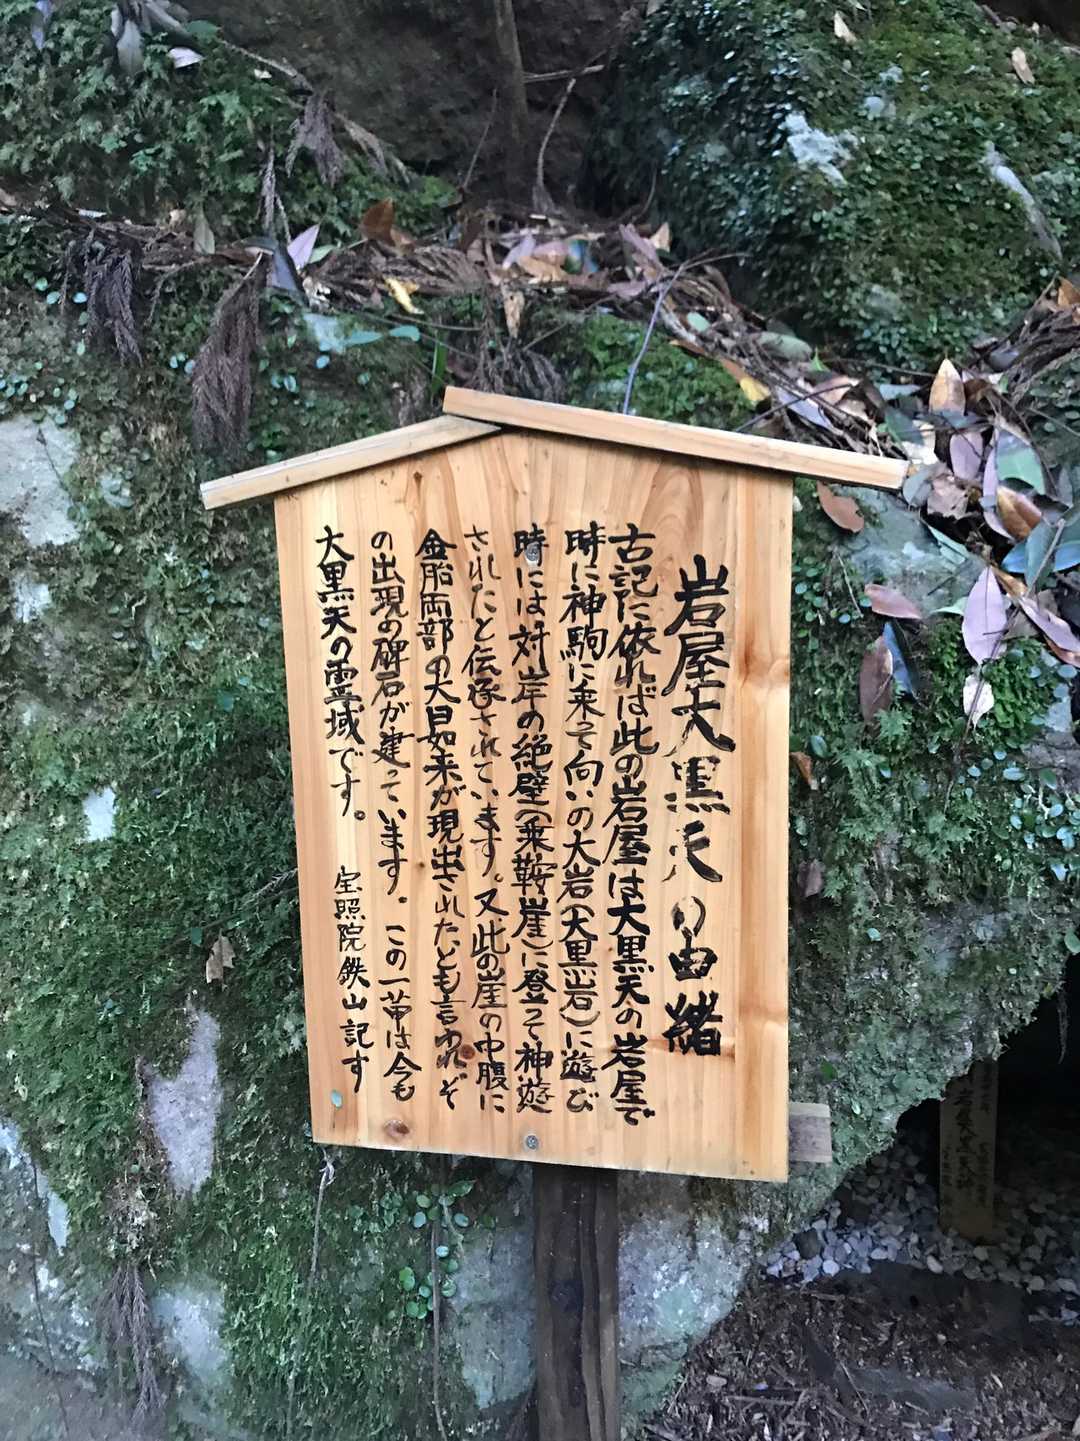 岩屋大黒天の由緒
古記に依れば此の岩屋は大黒天の岩屋で
時に神駒に来て向いの大岩(大黒岩)に遊び
時には対岸の絶壁(乗鞍崖)に登って神遊
されたと伝承されています。又此の崖の中腹に
金胎両部の大日如来が現出されたとも言われぞ
の出現の碑石が建っています。この一帯は今も
大黒天の霊域です。
宝照院鉄山記す